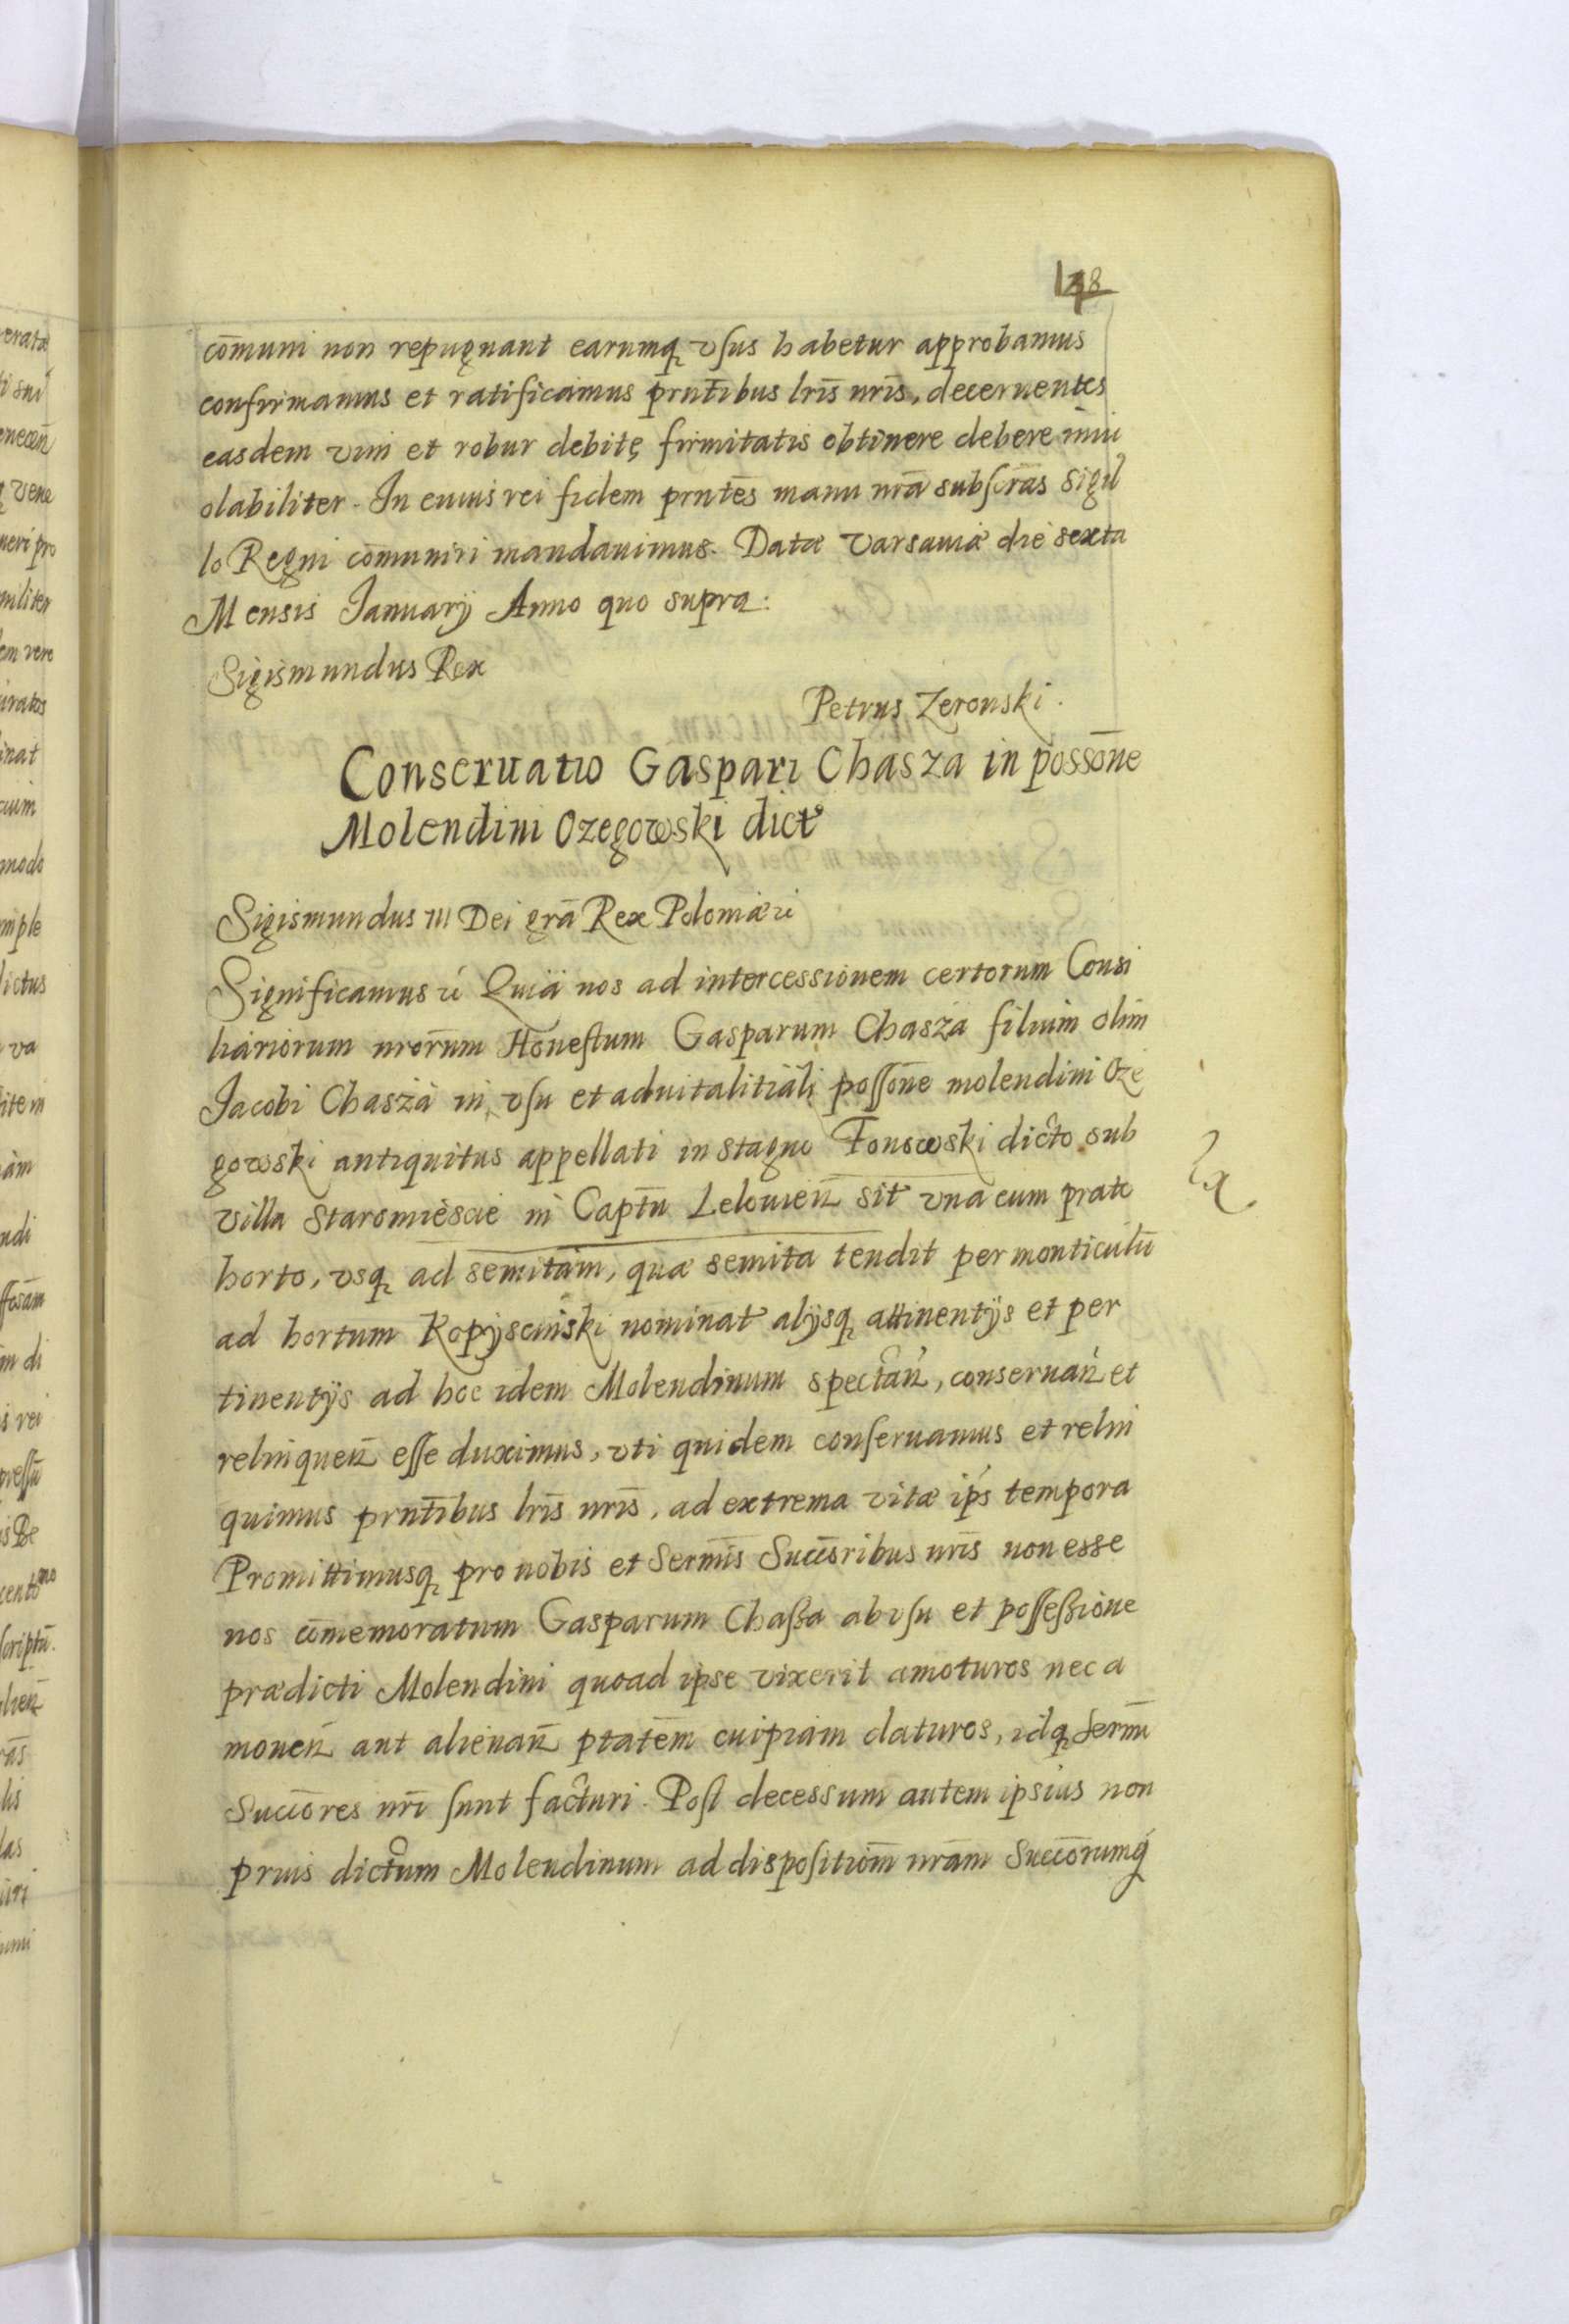 148
com̄uni non repugnant earumq vsus habetur approbamus
confirmamus et ratificamus prnt̄ibus lrīs nrīs, decernentes
easdem vim et robur debitę firmitatis obtinere debere inui
olabiliter. In cuius rei fidem prntēs manu nrā subscrās Sigil
lo Regni com̄uniri mandauimus. Datæ Varsauiæ die sexta
Mensis Ianuarij Anno quo supra:
Sigismundus Rex
Petrus Zeronski.
Conseruatio Gaspari Chasza in possōne
Molendini Ozegowski dict
Sigismundus III Dei grā Rex Poloniæ
Significamus Quia nos ad intercessionem certorum Consi
liariorum nrorūm Honestum Gasparum Chasza filium olim
Jacobi Chasza in vsu et aduitalitiali possōne molendini Oze
gowski antiquitus appellati in stagno Fonowski dicto sub
villa Staromiescie in Captū Lelouien sit vna cum prato
horto, vsq ad semitam, quæ semita tendit per monticulū
ad hortum Kopijscinski nominat alijsq attinentijs et per
tinentijs ad hoc idem Molendinum spectan, conseruan et
relinquen esse duximus, vti quidem conseruamus et relin
quimus prnt̄ibus lrīs nrīs, ad extrema vitæ ips tempora
Promittimusq pro nobis et Sermīs Succōribus nrīs non esse
nos com̄emoratum Gasparum Chasza ab vsu et possessione
prædicti Molendini quoad ipse vixerit amoturos nec a
mouen aut alienan ptatēm cuipiam daturos, idq Sermī
Succōres nrī sunt facturi. Post decessum autem ipsius non
prius dictum Molendinum ad dispositiom̄ nrām Succōrumq